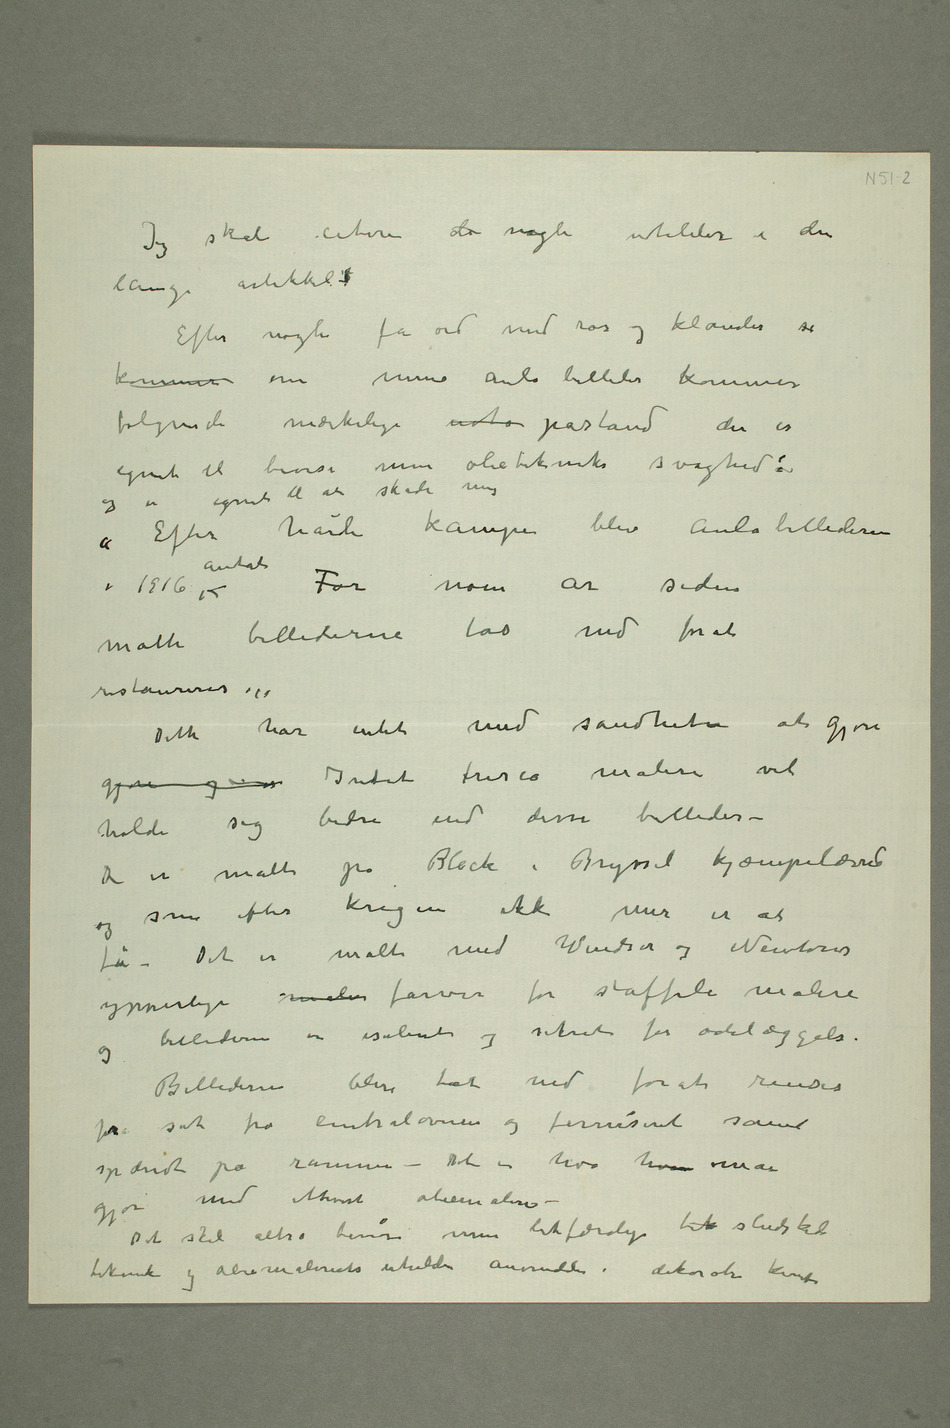 N 51-2
Jeg skal citere de nogle utalelser i den
lange artikkel:
Efter nogle få ord med ros og klander så
kommer om mine aula billeder kommer
følgende mærkelige noto påstand der er
egnet til bevise min olietekniks svaghed:
og er egnet til at skade mig
Efter hårde kampe blev Aulabillederne
i 1916 antat For noen år siden
måtte billederne taes ned forat
restaureres
Dette har intet med sandheten at gjøre
gjøre og Intet fresco maleri vil
holde sig bedre end disse billeder –
De er malt på Block i Bryssel kjæmpelærred
og som efter krigen ikke mer er at
få – Det er malt med Windsor og Newtons
ypperlige maler farver for staffeli maleri
og billederne er isoleret og sikret for ødelæggelse.
Billederne blev tat ned forat renses
for sot fra centralovnen og ferniseret samt
spændt på rammen – Det er hva hvem man
gjør med ethvert oliemaleri –
Det skal altså bevise min letfærdige tek skjødesløse
teknik og oliemaleriets uheldige anvendelse i dekorativ kunst